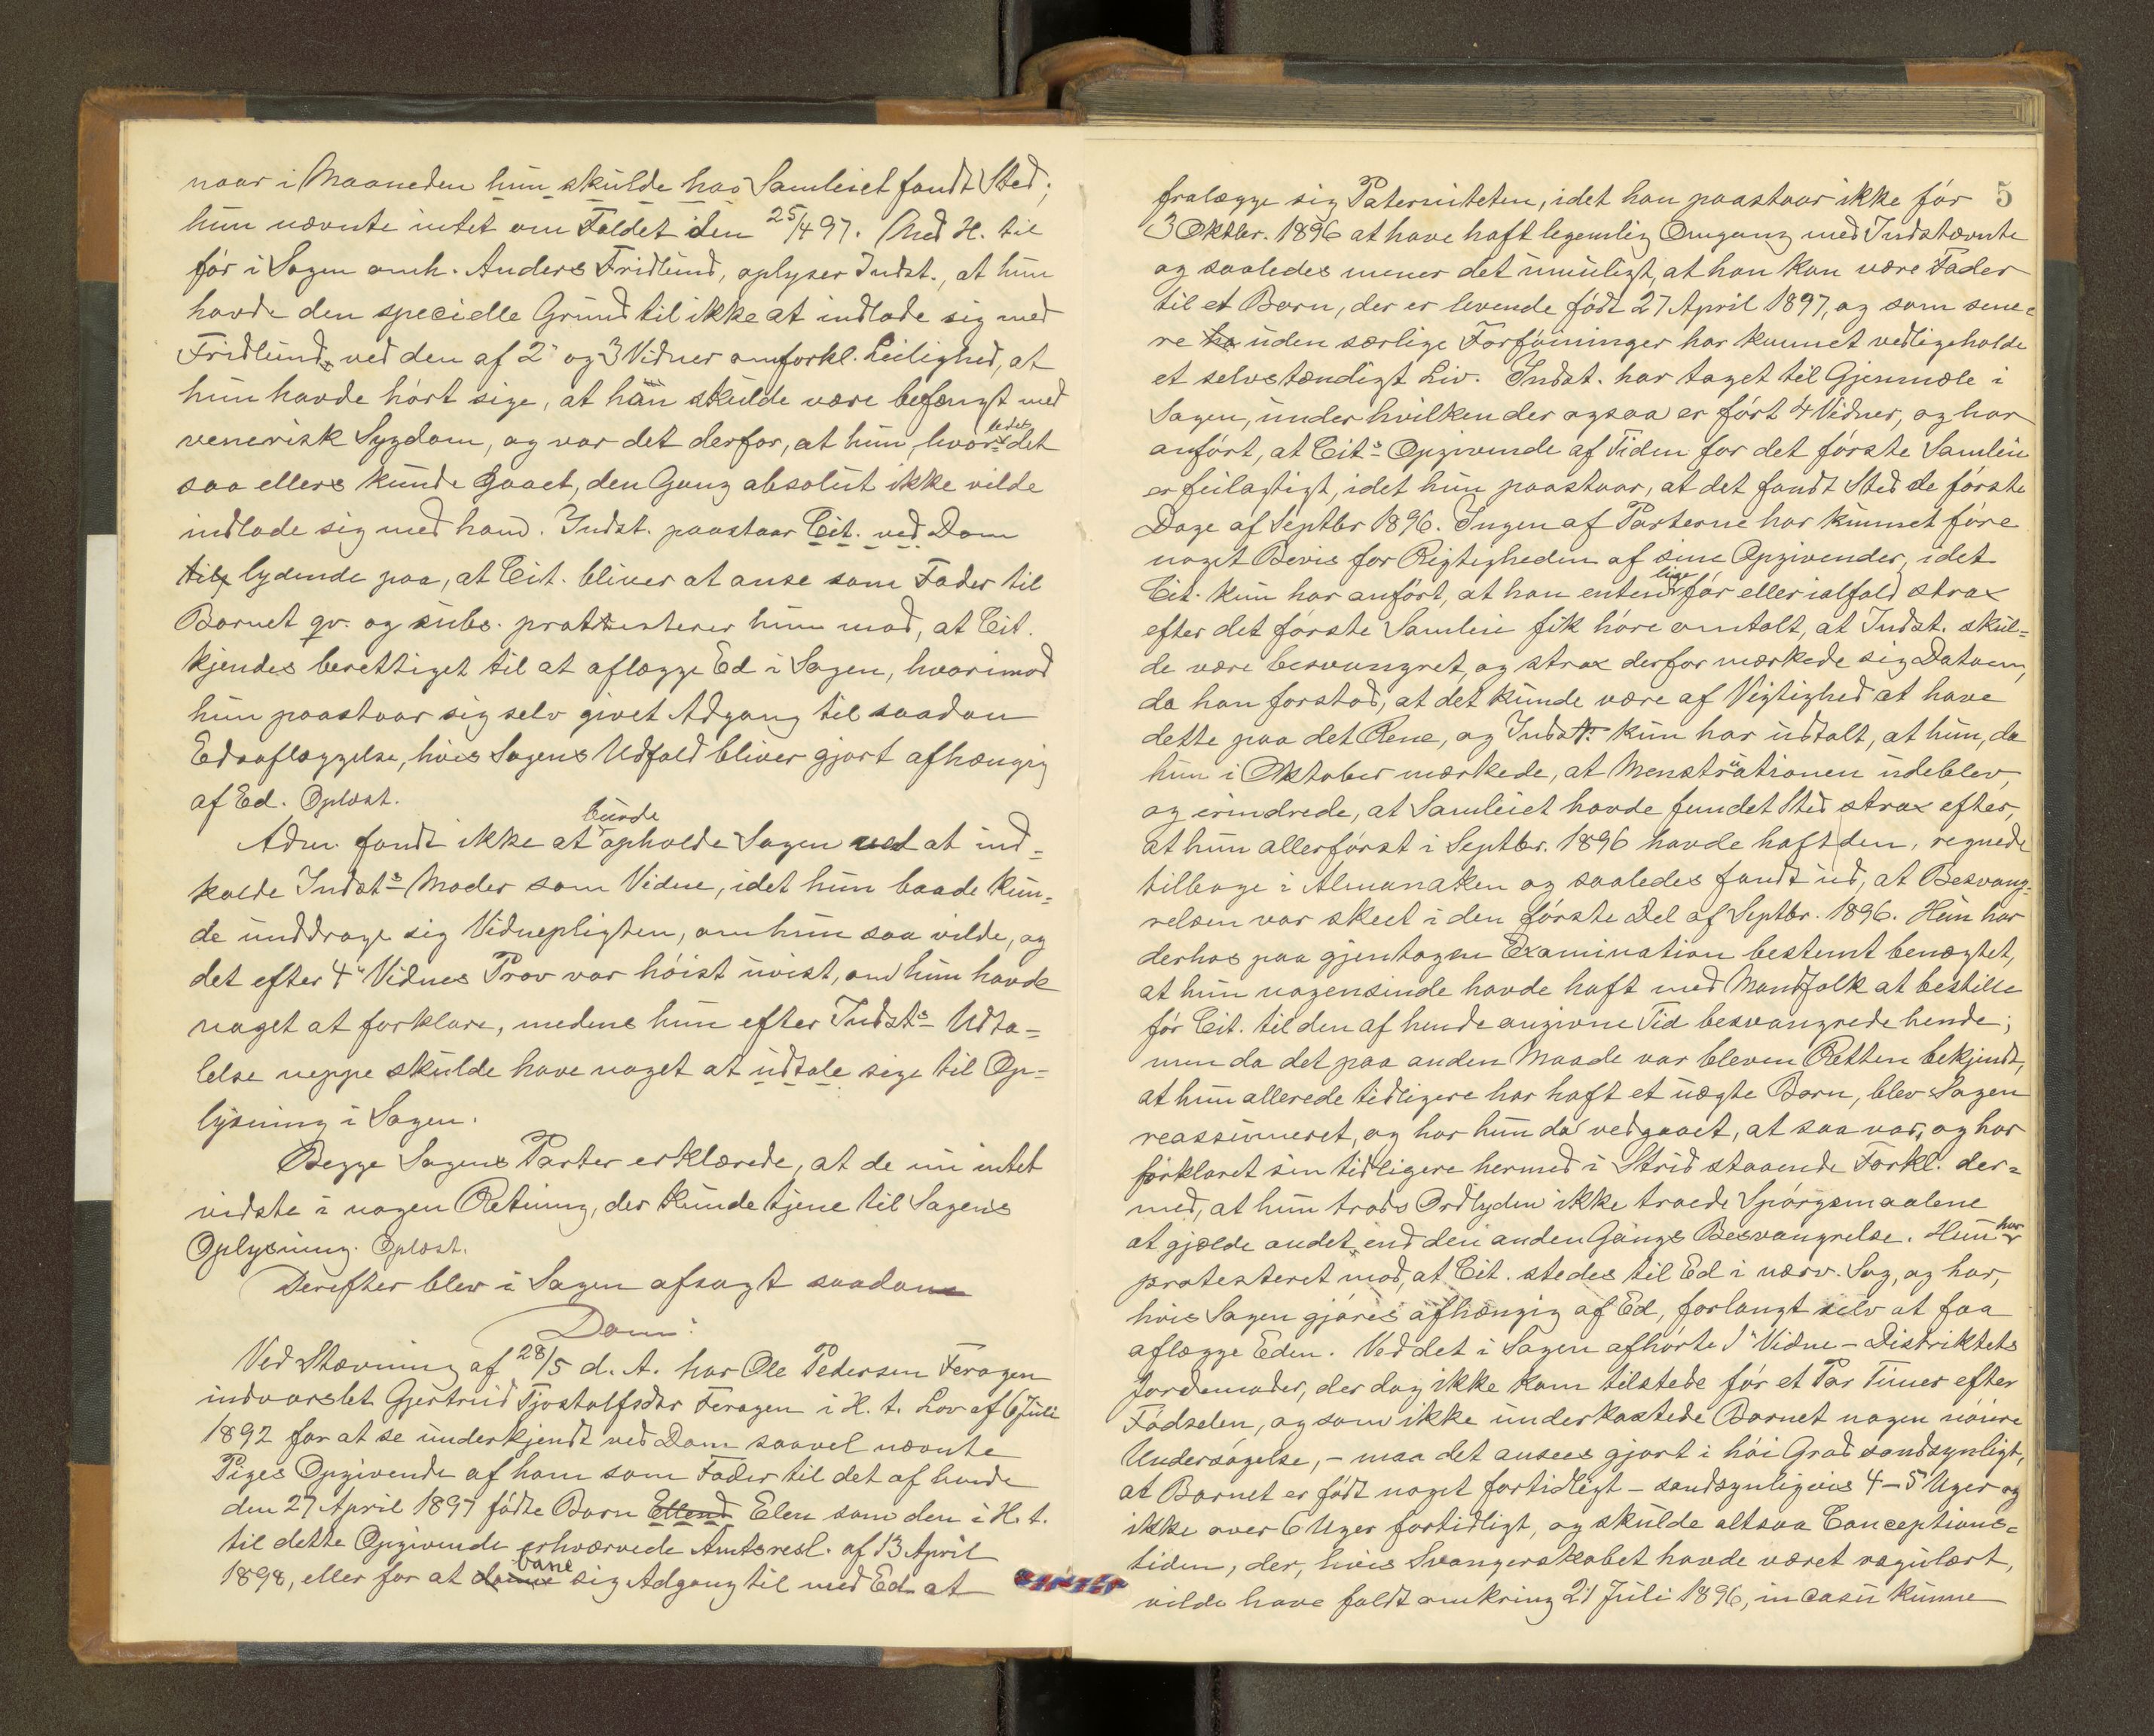 naar i Maaneden hun skulde hav Samleiet fandt Sted;
hun nævnte intet om Faldet den 25/4 97. Med H. til
før i Sagen omh. Anders Fridlund, oplyser Indst., at hun
havde den specielle Grund til ikke at indlade sig med
Fridlund ved den af 2' og 3 Vidner omforkl. Leilighed, at
hun havde hørt sige, at han skulde være befængt med
venerisk Sygdom, og var det derfor, at hun, hvorledes det
saa ellers kunde gaaet, den Gang absolut ikke vilde
indlade sig med ham. Indst. paastaar Cit. ved Dom
til lydende paa, at Cit. bliver at anse som Fader til
Barnet qv. og subs. protesterer hun mod, at Cit.
kjendes berettiget til at aflægge Ed i Sagen, hvorimod
hun paastaar sig selv givet Adgang til saadan
Edsaflæggelse, hvis Sagens Udfald bliver gjort afhængig
af Ed. Oplæst.
Adm. fandt ikke at burde opholde Sagen ved at ind-
kalde Indsts Moder som Vidne, idet hun baade kun-
de unddrage sig Vidnepligten, om hun saa vilde, og
det efter 4' Vidnes Prov var høist uvist, om hun havde
noget at forklare, medens hun efter Indsts Udta-
lelse neppe skulde have noget at udtale sige til Op-
lysning i Sagen.
Begge Sagens Parter erklærede, at de nu intet
vidste i nogen Retning, der kunde tjene til Sagens
Oplysning. Oplæst.
Derefter blev i Sagen afsagt saadan
Dom:
Ved Stævning af 28/5 d. A. har Ole Pedersen Feragen
indvarslet Gjertrud Tjostolfsdtr Feragen i H. t. Lov af 6 Juli
1892 for at se underkjendt ved Dom saavel nævnte
Piges Opgivende af ham som Fader til det af hende
den 27 April 1897 fødte Barn Ellend Elen som den i H. t.
til dette Opgivende erhværvede Amtsresl. af 13 April
1898, eller for at bane sig Adgang til med Ed at
5
fralægge sig Paterniteten, idet han paastaar ikke før
3 Oktbr. 1896 at have haft legemlig Omgang med Indstævnte
og saaledes mener det umuligt, at han kan være Fader
til et Barn, der er levende født 27 April 1897, og som sene-
re ha uden særlige Forføininger har kunnet vedligeholde
et selvstændigt Liv. Indst. har taget til Gjenmæle i
Sagen, under hvilken der ogsaa er ført 4 Vidner, og har
anført, at Cits Opgivende af Tiden for det første Samleie
er feilagtigt, idet hun paastaar, at det fandt Sted de første
Dage af Septbr 1896. Ingen af Parterne har kunnet føre
noget Bevis for Rigtigheden af sine Opgivender, idet
Cit. kun har anført, at han enten lige før eller ialfald strax
efter det første Samleie fik høre omtalt, at Indst. skul-
de være besvangret, og strax derfor mærkede sig Datoen,
da han forstod, at det kunde være af Vigtighed at have
dette paa det Rene, og Indst. kun har udtalt, at hun, da
hun i Oktober mærkede, at Menstruationen udeblev,
og erindrede, at Samleiet havde fundet Sted strax efter,
at hun allerførst i Septbr. 1896 havde haft den, regnede
tilbage i Almanaken og saaledes fandt ud, at Besvang-
relsen var skeet i den første Del af Septbr. 1896. Hun har
derhos paa gjentagen Examination bestemt benægtet,
at hun nogensinde havde haft med Mandfolk at bestille
før Cit. til den af hende angivne Tid besvangrede hende;
men da det paa anden Maade var bleven Retten bekjendt,
at hun allerede tidligere har haft et uægte Barn, blev Sagen
reassumeret, og har hun da vedgaaet, at saa var, og har
forklaret sin tidligere hermed i Strid staaende Forkl. der-
med, at hun trods Ordlyden ikke troede Spørgsmaalene
at gjælde andet end den anden Gangs Besvangrelse. Hun har
protesteret mod, at Cit. stedes til Ed i nærv. Sag, og har,
hvis Sagen gjøres afhængig af Ed, forlangt selv at faa
aflægge Eden. Ved det i Sagen afhørte 1' Vidne – Distriktets
Jordemoder, der dog ikke kom tilstede før et Par Timer efter
Fødselen, og som ikke underkastede Barnet nogen nøiere
Undersøgelse, – maa det ansees gjort i høi Grad sandsynligt,
at Barnet er født noget fortidligt – sandsynligvis 4–5 Uger og
ikke over 6 Uger fortidligt, og skulde altsaa Conceptions-
tiden, der, hvis Svangerskabet havde været regulært,
vilde have faldt omkring 21 Juli 1896, in casu kunne